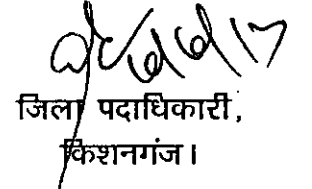 जिला पदाधिकारी,
किशनगंज।